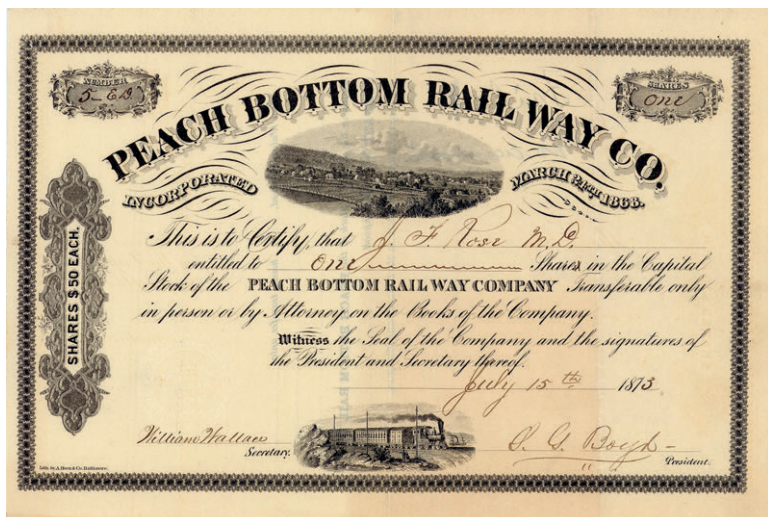 NUMBER
5-ED
SHARES
One
PEACH BOTTOM RAIL WAY CO.
INCORPORATED
MARCH 24TH 1868.
SHARES $50 EACH.
This is to Certify, that J. F. Rose M.D.
entitled to One Shares in the Capital
Stock of the PEACH BOTTOM RAIL WAY COMPANY Transferable only
in person or by Attorney on the Books of the Company.
Witness the Seal of the Company and the signatures of
the President and Secretary thereof.
July 15th 1873
William Wallace
Secretary.
S. G. Boyd
President.
Lith. by A. Hoen & Co. Baltimore.